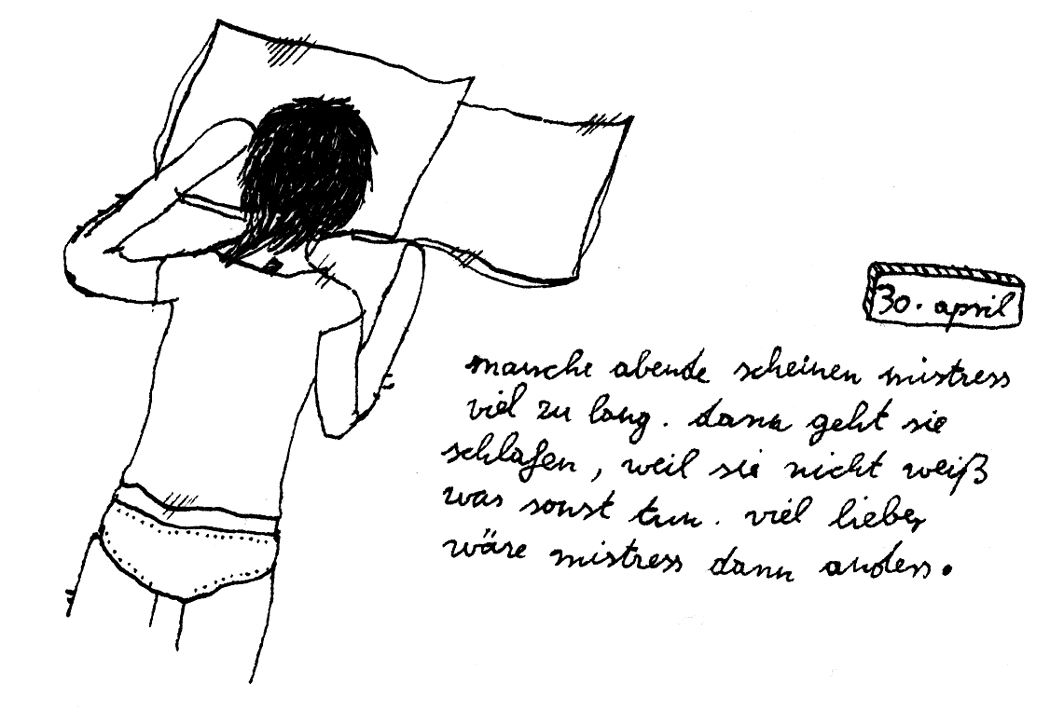 30. april
manche abende scheinen mistress
viel zu lang. dann geht sie
schlafen, weil sie nicht weiß
was sonst tun. viel lieber
wäre mistress dann anders.